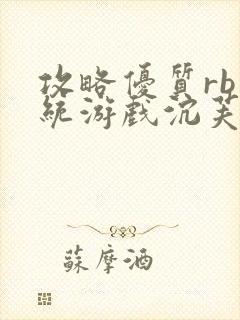 攻略優質rb
統游戲沉芙
蘇摩酒